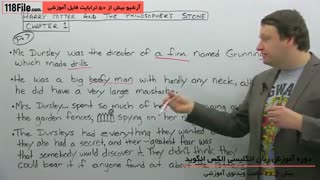 118File.com
آرشیو بیش از ۵۰ ترابایت فایل آموزشی
HARRY POTTER AND THE PHILOSOPHER'S STONE
CHAPTER 1
Mr Dursley was the director of a firm named Grunning
which made drills.
He was a big beefy man with hardly any neck, alth
he did have a very large moustache.
Mrs. Dursley... spent so much of her
the garden fences, spying on her n
The Dursleys had everything they wanted
they also had a secret, and their greatest fear was
that somebody would discover it. They didn't think they
could bear it if anyone found out about
دوره آموزش زبان انگلیسی الکس انگوید
بیش از ۷۷ ساعت ویدئوی آموزشی